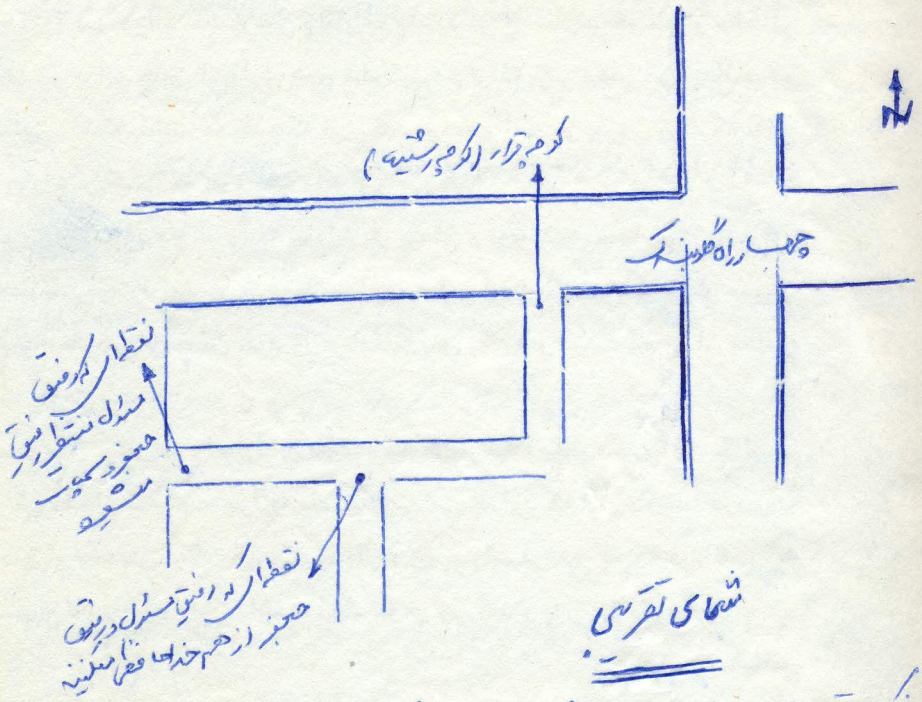 N
کوچه قرار (کوچه رشتیها)
چهارراه گلوبندک
نقطه‌ای که رفیق
مسئول منتظر رفیق
جعفر و سمپات
میشود
نقطه‌ای که رفیق مسئول و رفیق
جعفر از هم خداحافظی میکنند
شمای تقریبی